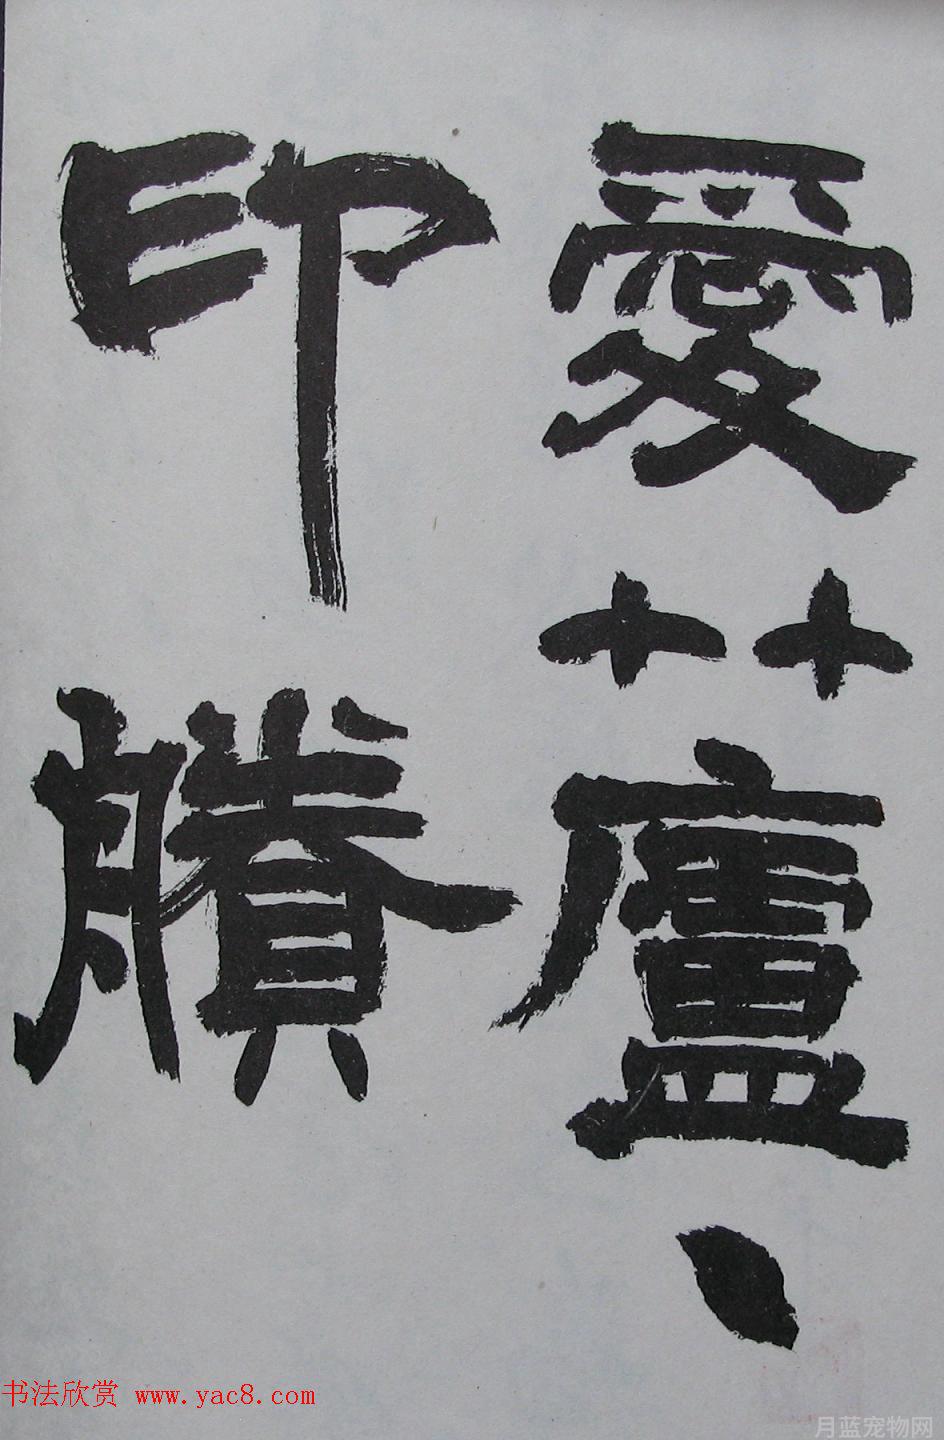 愛蘆、
印賸
书法欣赏 www.yac8.com
月蓝宠物网